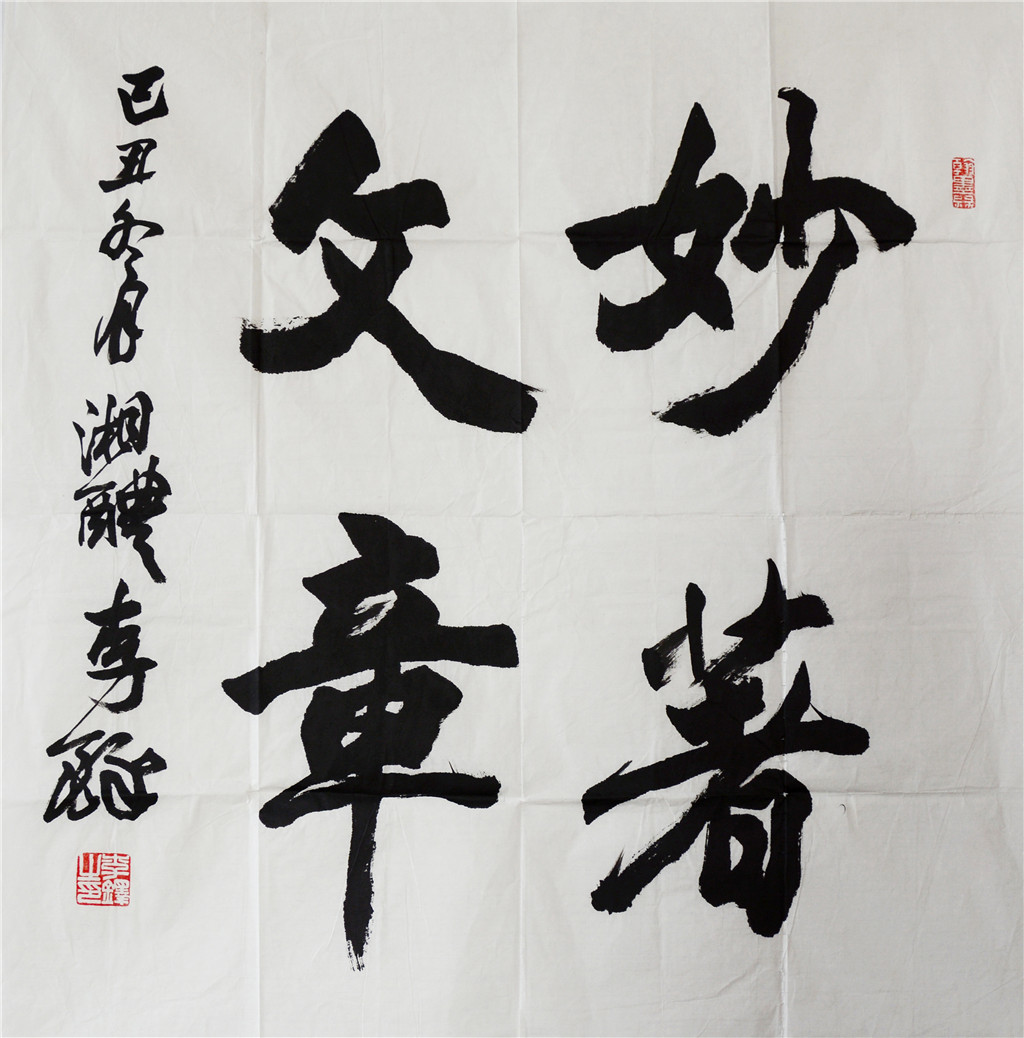 妙著
文章
己丑冬月湘醴李鐸
李鐸之印